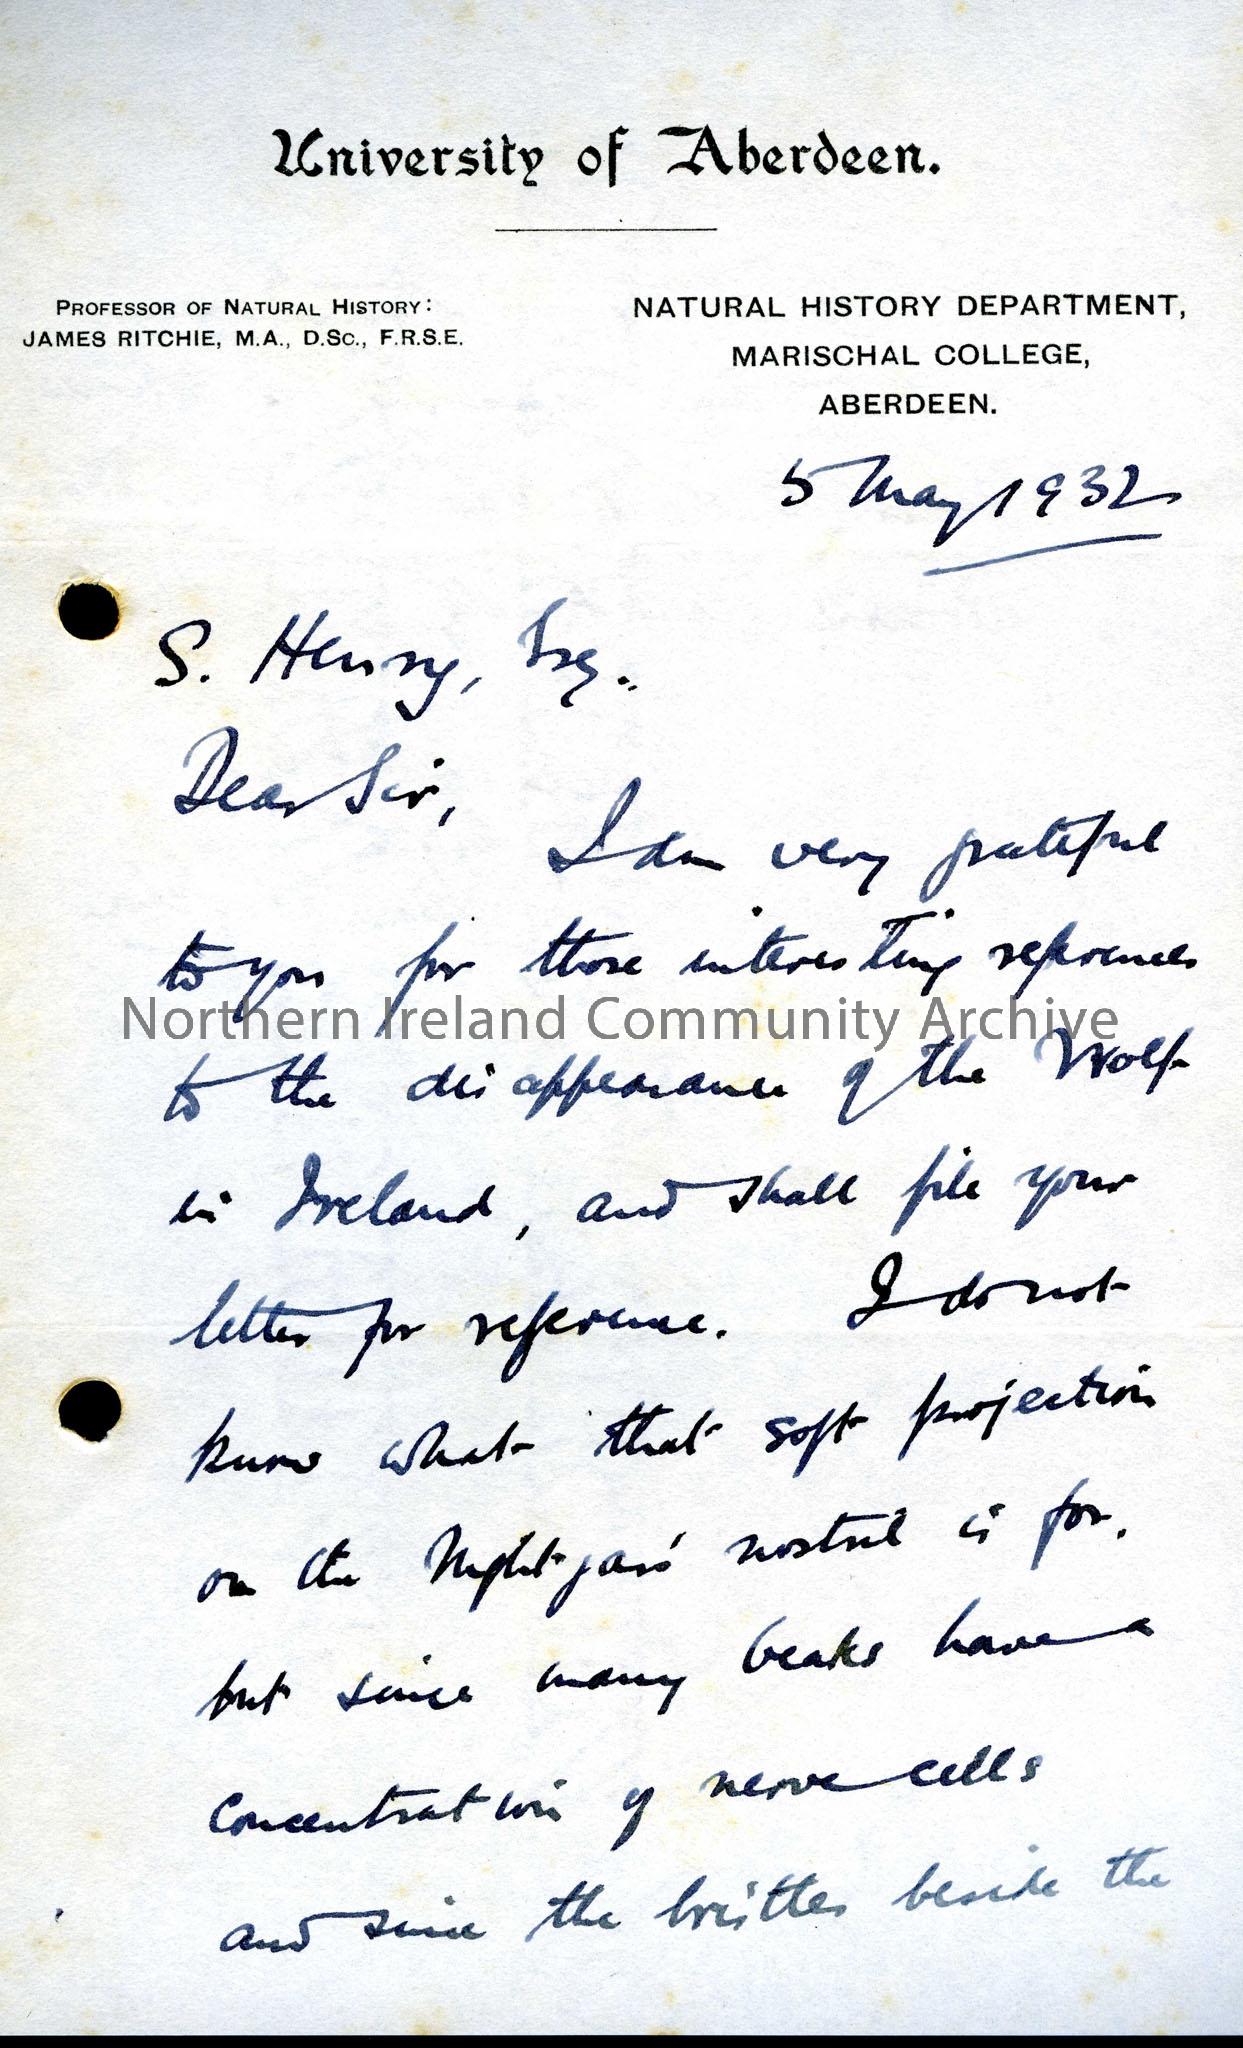 University of Aberdeen.
PROFESSOR OF NATURAL HISTORY:
JAMES RITCHIE, M.A., D.SC., F.R.S.E.
NATURAL HISTORY DEPARTMENT,
MARISCHAL COLLEGE,
ABERDEEN.
5 May 1932
S. Henry, Esq.
Dear Sir,
I am very grateful
to you for those interesting references
Northern Ireland Community Archive
to the disappearance of the Wolf
in Ireland, and shall file your
letter for reference. I do not
know what that soft projection
on the Nightjars' nostril is for,
but since many beaks have a
concentration of nerve cells
and since the bristles beside the